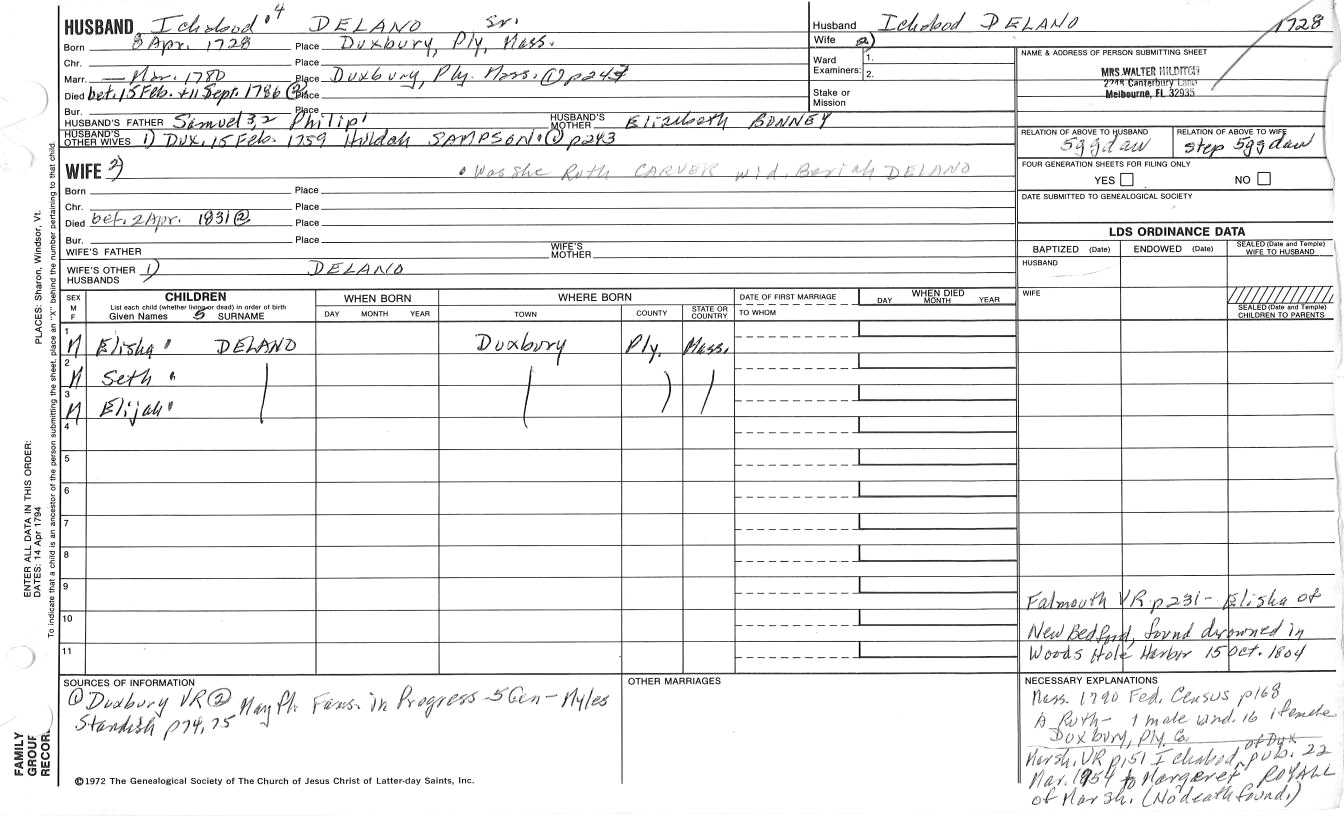 HUSBAND Ichabod⁴ DELANO Sr.
Born 8 Apr. 1728 Place Duxbury, Ply, Mass.
Chr. Place
Marr. — Mar. 1780 Place Duxbury, Ply. Mass. ① p243
Died bet. 15 Feb. + 11 Sept. 1786 ② Place
Bur. Place
HUSBAND'S FATHER Samuel 3,2 Philip¹ HUSBAND'S MOTHER Elizabeth BONNEY
HUSBAND'S OTHER WIVES 1) Dux. 15 Feb. 1759 Huldah SAMPSON ① p243
Husband Ichabod DELANO 1728
Wife 2)
Ward Examiners: 1. 2.
Stake or Mission
NAME & ADDRESS OF PERSON SUBMITTING SHEET
MRS. WALTER HILDITCH
Canterbury Lane
Melbourne, FL 32935
RELATION OF ABOVE TO HUSBAND RELATION OF ABOVE TO WIFE
5ggdau step 5ggdau
FOUR GENERATION SHEETS FOR FILING ONLY
YES NO
DATE SUBMITTED TO GENEALOGICAL SOCIETY
WIFE 2) Was she Ruth CARVER wid. Beriah DELANO
Born Place
Chr. Place
Died bef. 2 Apr. 1831 ② Place
Bur. Place
WIFE'S FATHER WIFE'S MOTHER
WIFE'S OTHER HUSBANDS 1) DELANO
LDS ORDINANCE DATA
BAPTIZED (Date) ENDOWED (Date) SEALED (Date and Temple) WIFE TO HUSBAND
HUSBAND
WIFE
SEALED (Date and Temple) CHILDREN TO PARENTS
SEX M F CHILDREN WHEN BORN WHERE BORN DATE OF FIRST MARRIAGE WHEN DIED
List each child (whether living or dead) in order of birth
Given Names 5 SURNAME DAY MONTH YEAR TOWN COUNTY STATE OR COUNTRY TO WHOM DAY MONTH YEAR
1 M Elisha DELANO Duxbury Ply. Mass.
2 M Seth
3 M Elijah
4
5
6
7
8
9
10
11
Falmouth VR p231 - Elisha of
New Bedford, found drowned in
Woods Hole Harbor 15 Oct. 1804
SOURCES OF INFORMATION
① Duxbury VR ② Mayfl. Fams. in Progress - 5 Gen - Myles
Standish p74, 75
OTHER MARRIAGES
NECESSARY EXPLANATIONS
Mass. 1790 Fed. Census p168
A Ruth - 1 male und. 16 1 female
Duxbury, Ply. Co.
Marsh. VR p151 Ichabod, of Dux. pub. 22
Mar. to Margaret ROYALL
of Marsh. (No death found.)
©1972 The Genealogical Society of The Church of Jesus Christ of Latter-day Saints, Inc.
FAMILY GROUP RECORD
ENTER ALL DATA IN THIS ORDER:
DATES: 14 Apr 1794
PLACES: Sharon, Windsor, Vt.
To indicate that a child is an ancestor of the person submitting the sheet, place an "X" behind the number pertaining to that child.